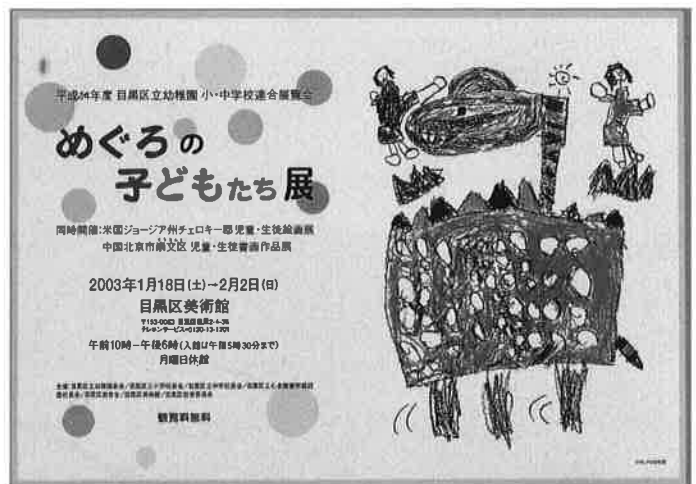 平成14年度 目黒区立幼稚園 小・中学校連合展覧会
めぐろの
子どもたち展
同時開催:米国ジョージア州チェロキー郡児童・生徒絵画展
中国北京市崇文区 児童・生徒書画作品展
2003年1月18日(土)→2月2日(日)
目黒区美術館
〒153-0063 目黒区目黒2-4-36
午前10時−午後6時(入館は午後5時30分まで)
月曜日休館
観覧料無料